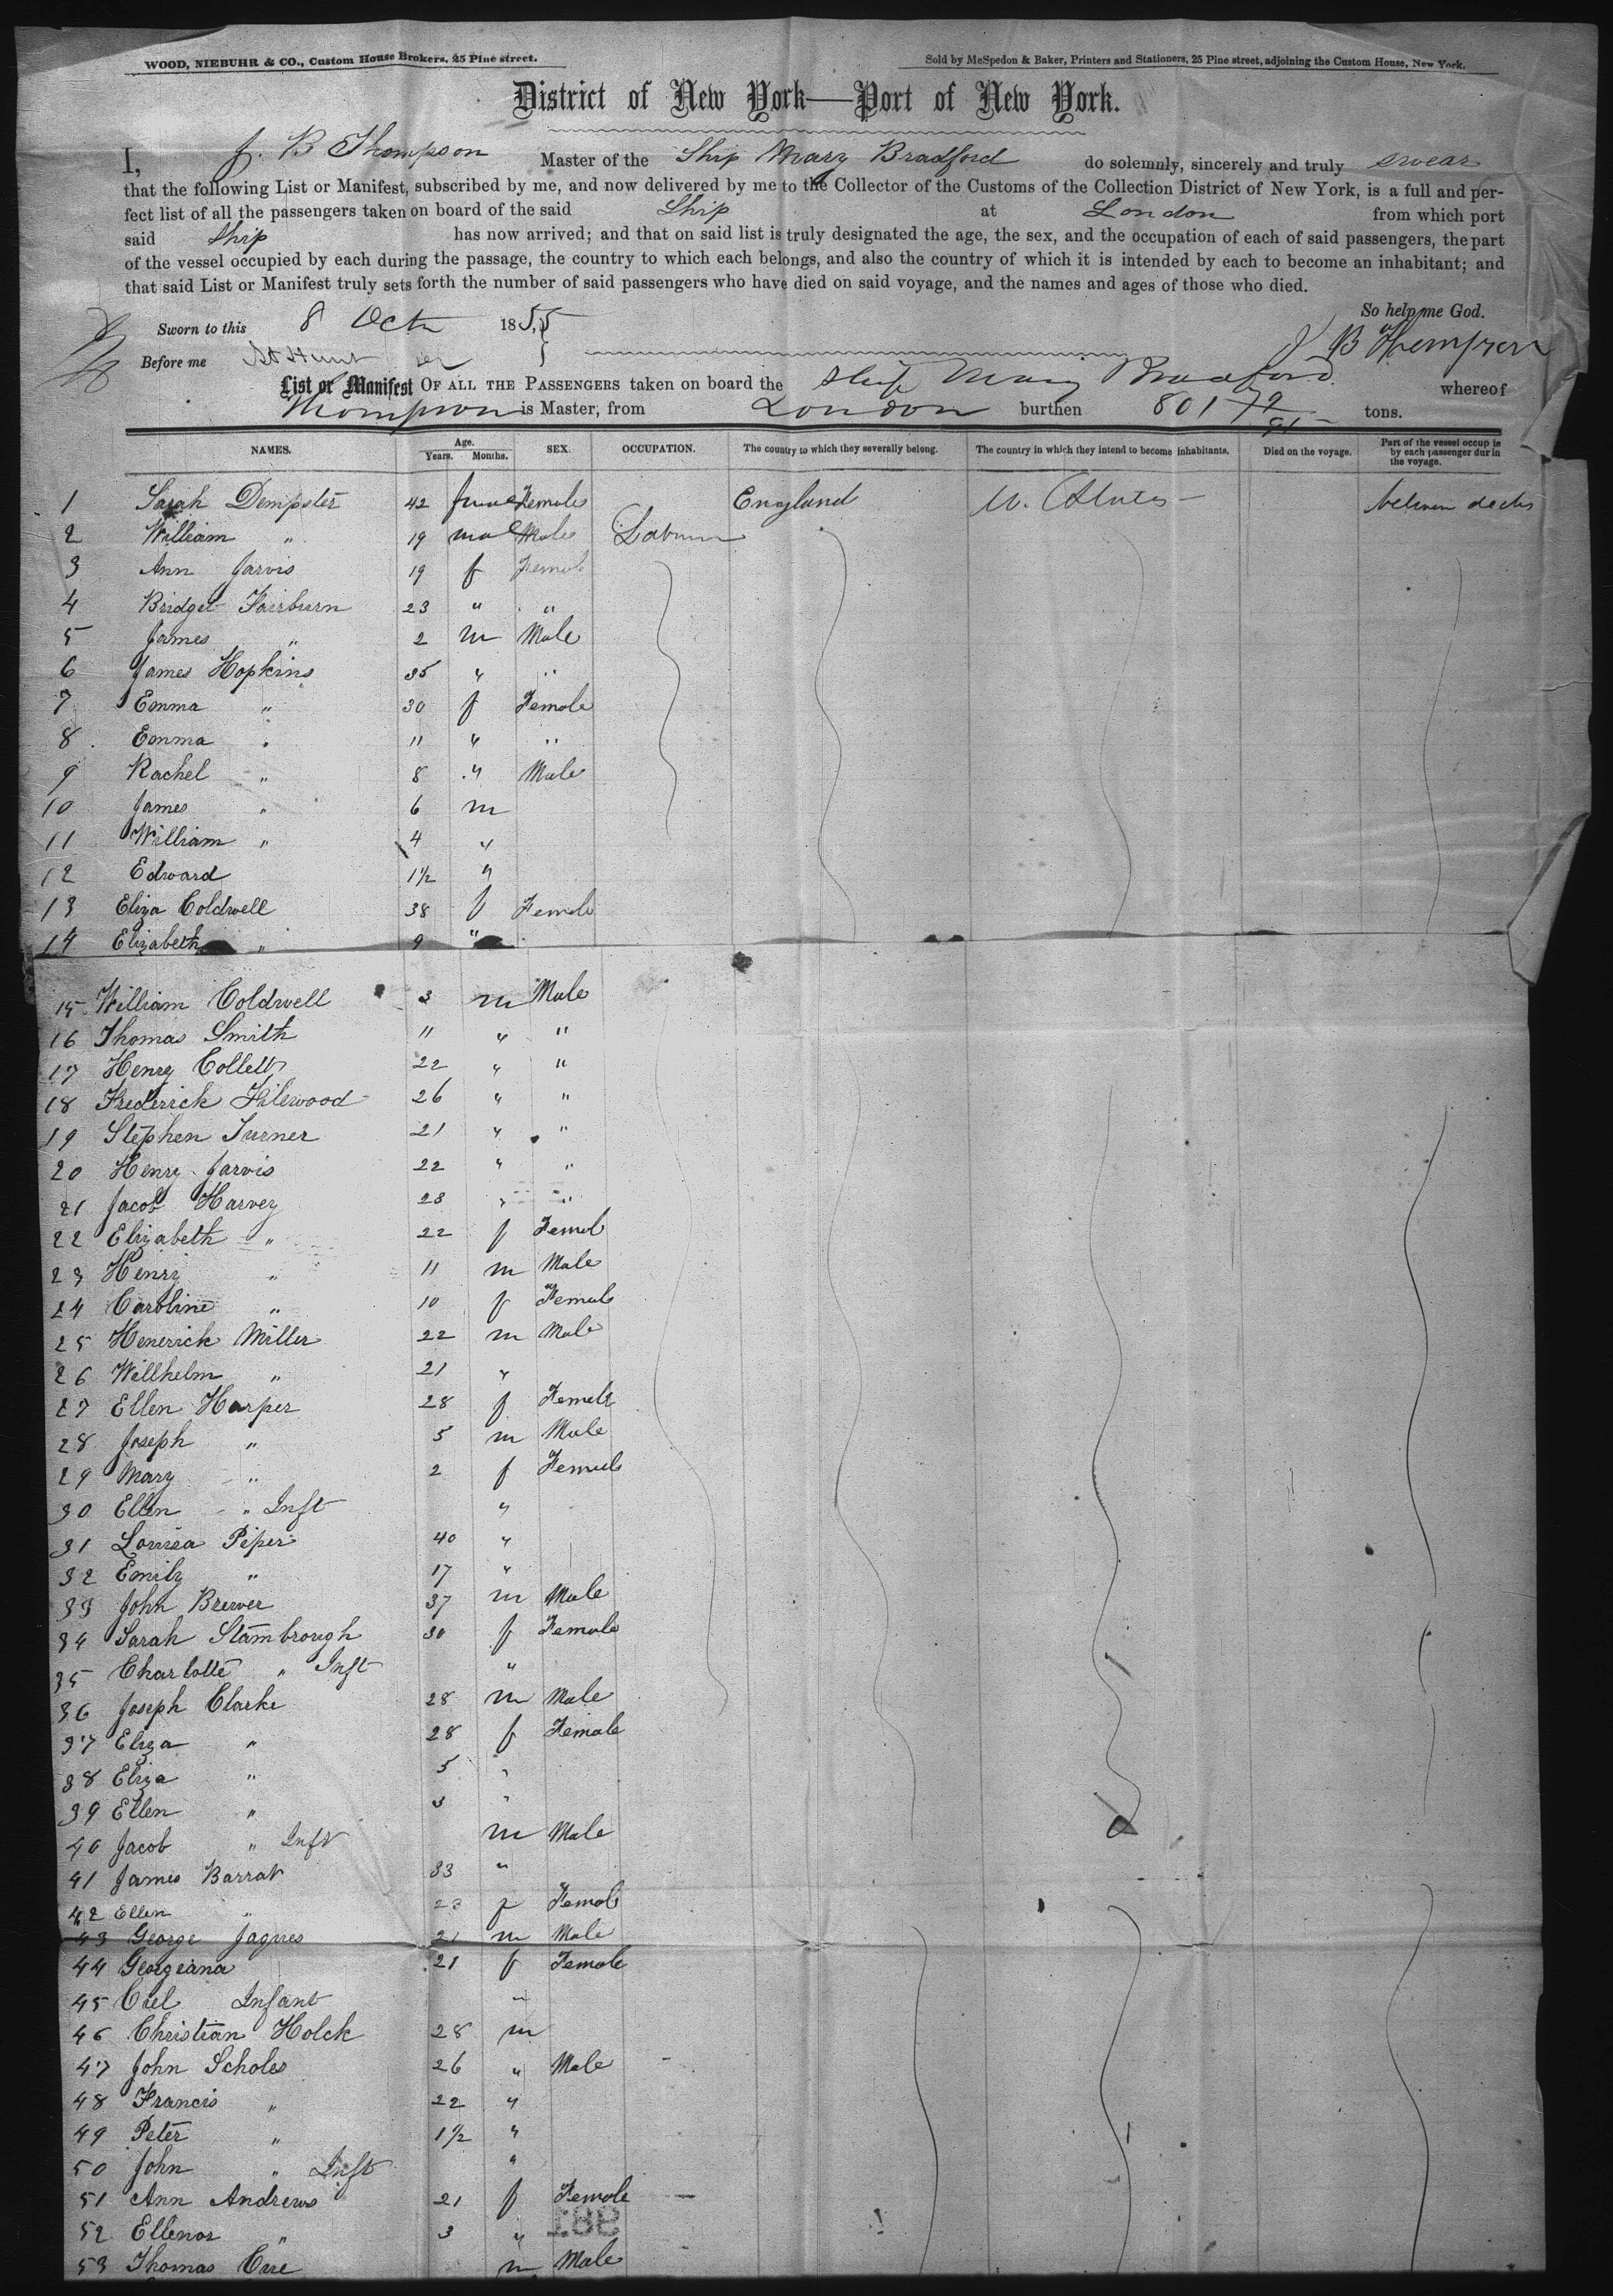 WOOD, NIEBUHR & CO., Custom House Brokers, 25 Pine street.
Sold by McSpedon & Baker, Printers and Stationers, 25 Pine street, adjoining the Custom House, New York.
District of New York—Port of New York.
I, J. B Thompson Master of the Ship Mary Bradford do solemnly, sincerely and truly swear
that the following List or Manifest, subscribed by me, and now delivered by me to the Collector of the Customs of the Collection District of New York, is a full and per-
fect list of all the passengers taken on board of the said Ship at London from which port
said Ship has now arrived; and that on said list is truly designated the age, the sex, and the occupation of each of said passengers, the part
of the vessel occupied by each during the passage, the country to which each belongs, and also the country of which it is intended by each to become an inhabitant; and
that said List or Manifest truly sets forth the number of said passengers who have died on said voyage, and the names and ages of those who died.
So help me God.
Sworn to this 8 Octr 1855,
J B Thompson
Before me
List or Manifest OF ALL THE PASSENGERS taken on board the Ship Mary Bradford whereof
Thompson is Master, from London burthen 801 72/95 tons.
NAMES. Age. Years. Months. SEX. OCCUPATION. The country to which they severally belong. The country in which they intend to become inhabitants. Died on the voyage. Part of the vessel occup ie by each passenger dur in the voyage.
1 Sarah Dempster 42 Female England U. States between decks
2 William " 19 male Male Labourer
3 Ann Jarvis 19 f Female
4 Bridget Fairburn 23 " "
5 James " 2 m Male
6 James Hopkins 35 " "
7 Emma " 30 f Female
8 Emma " 11 " "
9 Rachel " 8 " Male
10 James " 6 m
11 William " 4 "
12 Edward 1½ "
13 Eliza Coldwell 38 f Female
14 Elizabeth " 9 "
15 William Coldwell 3 m Male
16 Thomas Smith 11 " "
17 Henry Collett 22 " "
18 Frederick Filewood 26 " "
19 Stephen Turner 21 " "
20 Henry Jarvis 22 " "
21 Jacob Harvey 28 " "
22 Elizabeth " 22 f Female
23 Henry " 11 m Male
24 Caroline " 10 f Female
25 Henerick Miller 22 m Male
26 Willhelm " 21 "
27 Ellen Harper 28 f Female
28 Joseph " 5 m Male
29 Mary " 2 f Female
30 Ellen " Inft "
31 Louisa Piper 40 "
32 Emily " 17 "
33 John Brewer 37 m Male
34 Sarah Stambrough 30 f Female
35 Charlotte " Inft "
36 Joseph Clarke 28 m Male
37 Eliza " 28 f Female
38 Eliza " 5 "
39 Ellen " 3 "
40 Jacob " Inft m Male
41 James Barrat 33 "
42 Ellen " 23 f Female
43 George Jaques 21 m Male
44 Georgeana 21 f Female
45 Infant "
46 Christian Holck 28 m
47 John Scholes 26 " Male
48 Francis " 22 "
49 Peter " 1½ "
50 John " Inft "
51 Ann Andrews 21 f Female
52 Ellenor " 3 "
53 Thomas m Male